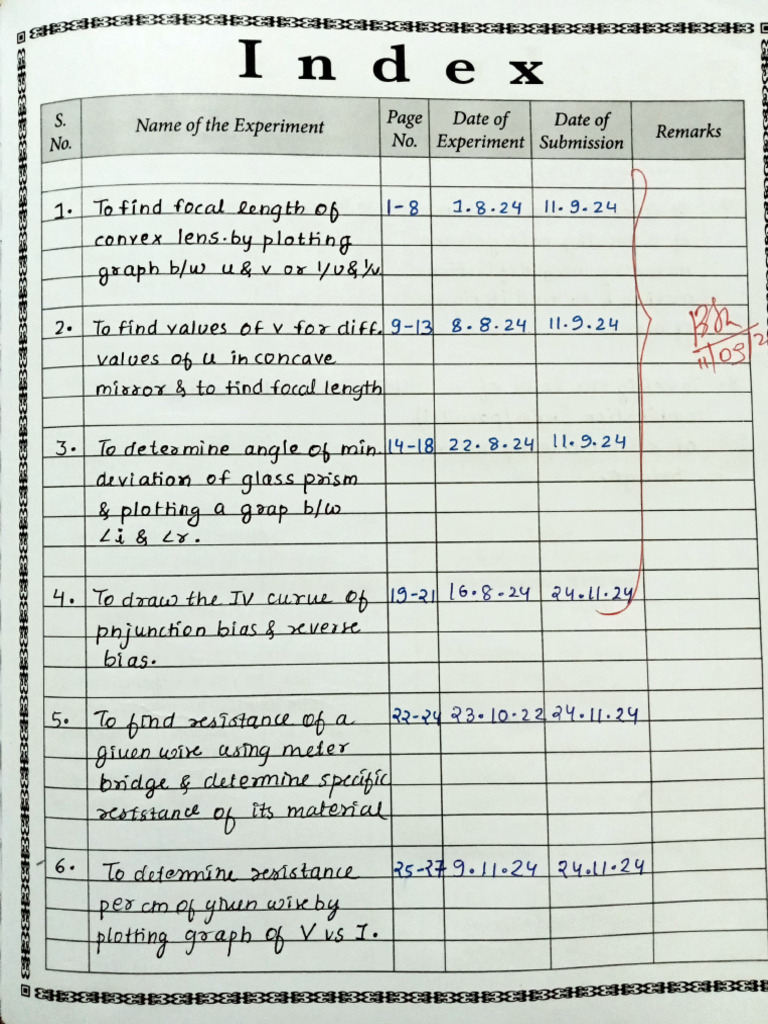 Index
S. No. Name of the Experiment Page No. Date of Experiment Date of Submission Remarks
1. To find focal length of 1-8 1.8.24 11.9.24
convex lens.by plotting
graph b/w u & v or 1/u & 1/v
2. To find values of v for diff. 9-13 8.8.24 11.9.24
values of u in concave
mirror & to find focal length
3. To determine angle of min. 14-18 22.8.24 11.9.24
deviation of glass prism
& plotting a grap b/w
∠i & ∠r.
4. To draw the IV curve of 19-21 16.8.24 24.11.24
pnjunction bias & reverse
bias.
5. To find resistance of a 22-24 23.10.22 24.11.24
given wire using meter
bridge & determine specific
resistance of its material
6. To determine resistance 25-27 9.11.24 24.11.24
per cm of given wire by
plotting graph of V vs I.
11/09/2